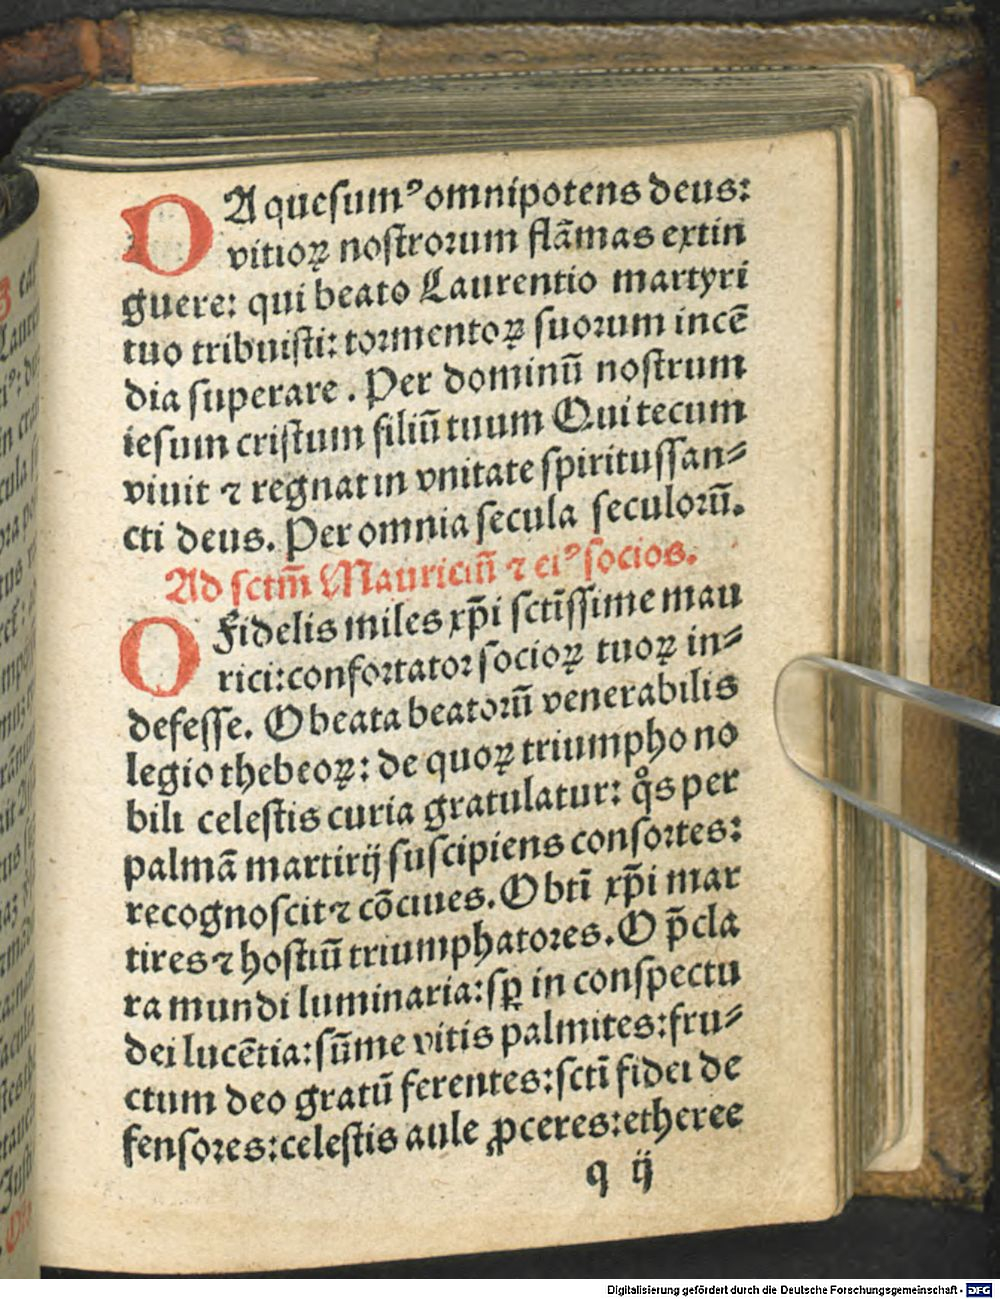 DA quesumꝰ omnipotens deus:
vitioꝝ nostrorum flāmas extin
guere: qui beato Laurentio martyri
tuo tribuisti: tormentoꝝ suorum incē
dia superare. Per dominū nostrum
iesum cristum filiū tuum Qui tecum
viuit ⁊ regnat in vnitate spiritussan⸗
cti deus. Per omnia secula seculorū.
Ad sctm̄ Mauriciū ⁊ eiꝰ socios.
O Fidelis miles xp̄i sctīssime mau
rici: confortator socioꝝ tuoꝝ in⸗
defesse. O beata beatorū venerabilis
legio thebeoꝝ: de quoꝝ triumpho no
bili celestis curia gratulatur: qͦs per
palmā martirij suscipiens consortes:
recognoscit ⁊ cōciues. O btī xp̄i mar
tires ⁊ hostiū triumphatores. O p̄cla
ra mundi luminaria: sꝑ in conspectu
dei lucētia: sūme vitis palmites: fru⸗
ctum deo gratū ferentes: sctī fidei de
fensores: celestis aule ꝓceres: etheree
q ij
Digitalisierung gefördert durch die Deutsche Forschungsgemeinschaft - DFG